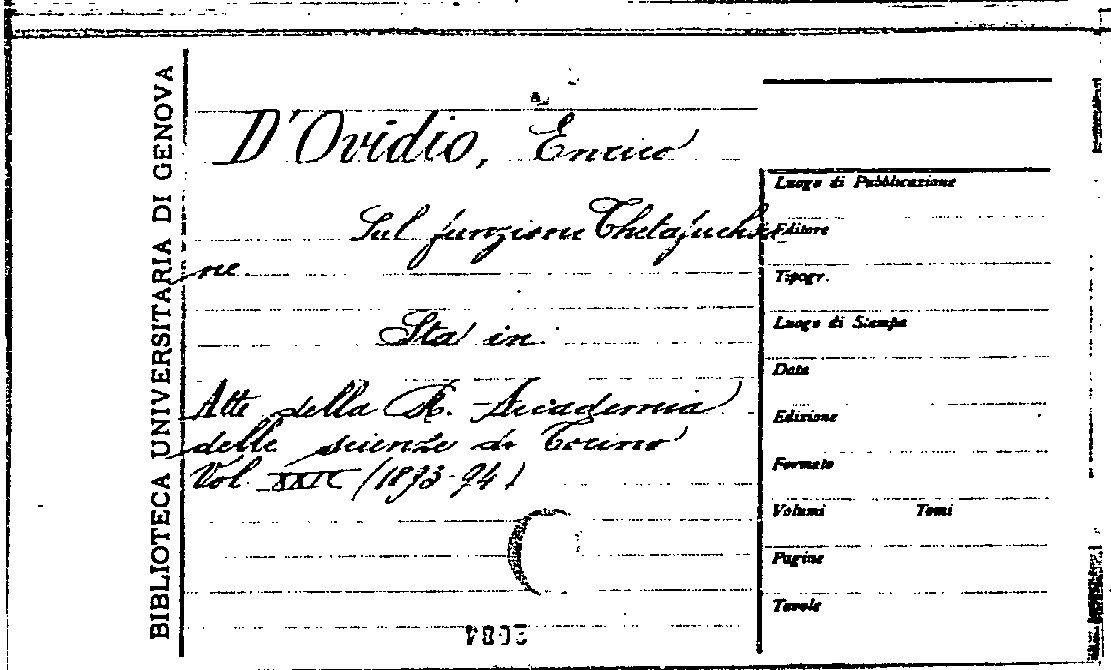 BIBLIOTECA UNIVERSITARIA DI GENOVA
D'Ovidio, Enrico
Sul funzione Thetafuchsia-
ne.
Sta in:
Atti della R. Accademia
delle scienze di Torino
Vol. XXIX (1893-94)
Luogo di Pubblicazione
Editore
Tipogr.
Luogo di Stampa
Data
Edizione
Formato
Volumi Tomi
Pagine
Tavole